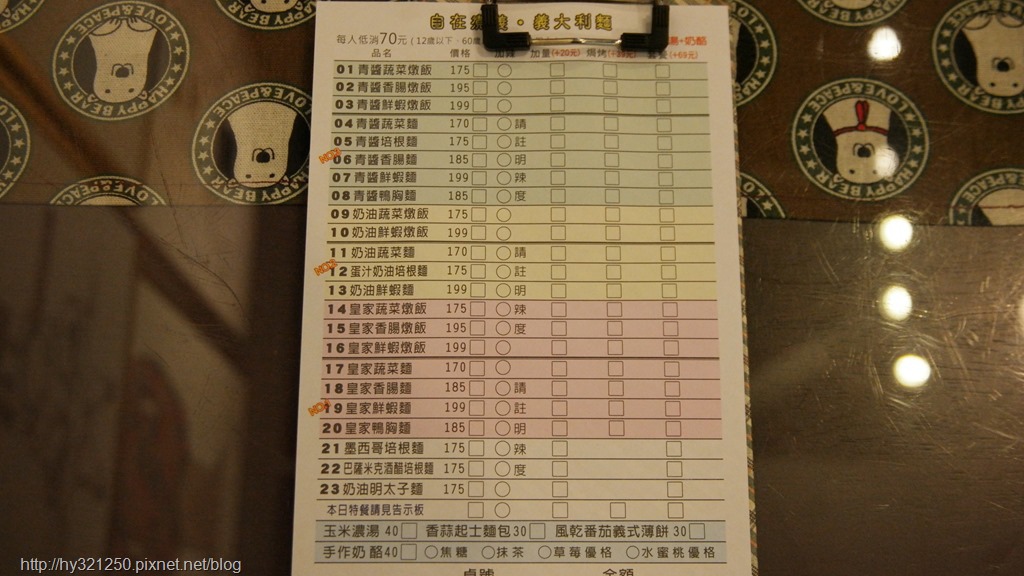 自在 · 義大利麵
每人低消70元 (12歲以下、60歲 湯+奶酪
品名 價格 加辣 加量(+20元) 焗烤 套餐(+69元)
01 青醬蔬菜燉飯 175
02 青醬香腸燉飯 195
03 青醬鮮蝦燉飯 199
04 青醬蔬菜麵 170 請
05 青醬培根麵 175 註
NO.1 06 青醬香腸麵 185 明
07 青醬鮮蝦麵 199 辣
08 青醬鴨胸麵 185 度
09 奶油蔬菜燉飯 175
10 奶油鮮蝦燉飯 199
11 奶油蔬菜麵 170 請
12 蛋汁奶油培根麵 175 註
13 奶油鮮蝦麵 199 明
14 皇家蔬菜燉飯 175 辣
15 皇家香腸燉飯 195 度
16 皇家鮮蝦燉飯 199
17 皇家蔬菜麵 170
18 皇家香腸麵 185 請
19 皇家鮮蝦麵 199 註
20 皇家鴨胸麵 185 明
21 墨西哥培根麵 175 辣
22 巴薩米克酒醋培根麵 175 度
23 奶油明太子麵 175
本日特餐請見告示板
玉米濃湯 40 香蒜起士麵包 30 風乾番茄義式薄餅 30
手作奶酪 40 焦糖 抹茶 草莓優格 水蜜桃優格
桌號 金額
HAPPY BEAR
LOVE&PEACE
HAPPY BEAR
LOVE&PEACE
HAPPY BEAR
LOVE&PEACE
HAPPY BEAR
LOVE&PEACE
LOVE&PEACE
http://hy321250.pixnet.net/blog